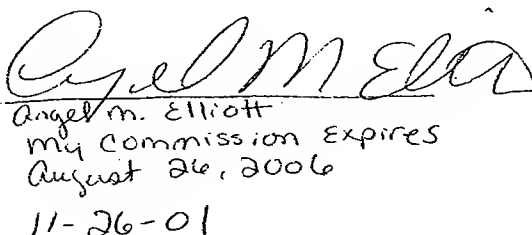 Angel M Elliott
Angel M. Elliott
My Commission Expires
August 26, 2006
11-26-01